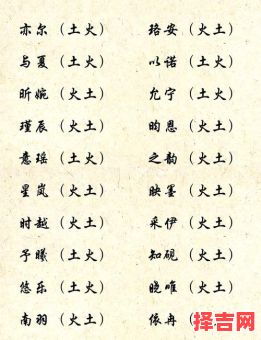 亦尔（土火） 珞安（火土）
与夏（土火） 以诺（土火）
昕婉（火土） 允宁（土火）
瑾辰（火土） 昀恩（火土）
意瑶（土火） 之韵（火土）
星岚（火土） 映墨（火土）
时越（火土） 采伊（火土）
予曦（土火） 知砚（火土）
悠乐（土火） 晓唯（火土）
南羽（火土） 依冉（
择吉网